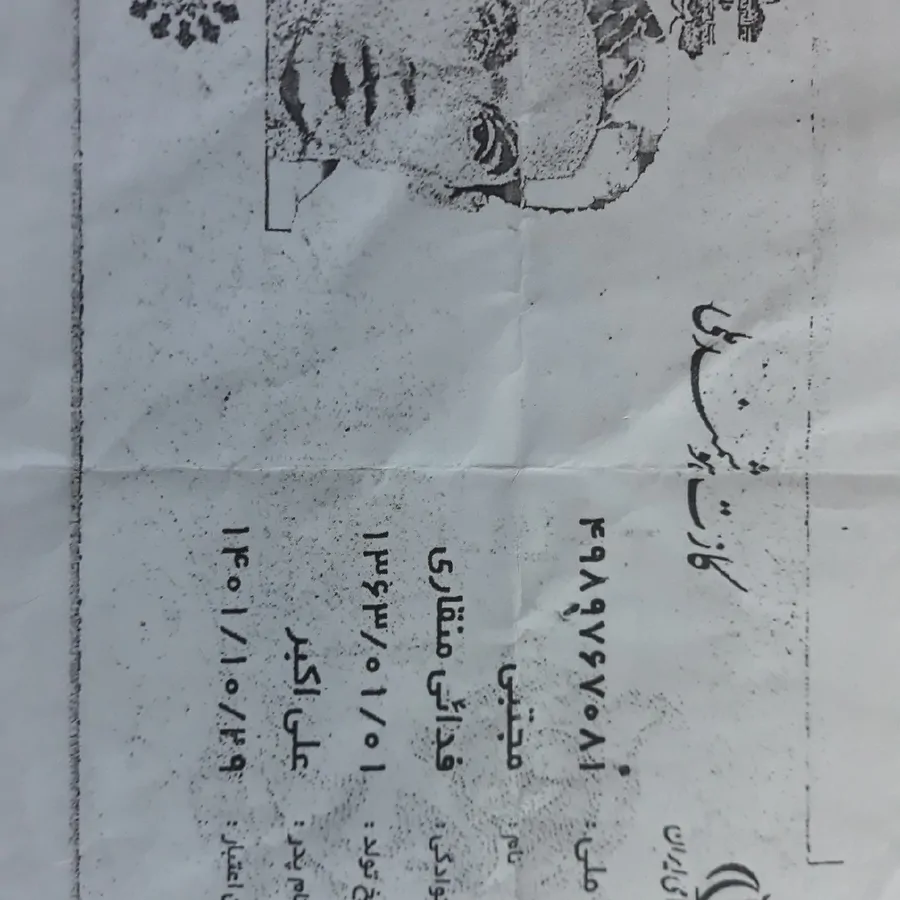 ایران
کارت هوشمند ملی
ملی : ۴۹۸۹۷۶۷۰۸۱
نام : مجتبی
وادگی : فدائی منقاری
خ تولد : ۱۳۶۳/۰۱/۰۱
ام پدر : علی اکبر
اعتبار : ۱۴۰۱/۱۰/۲۹